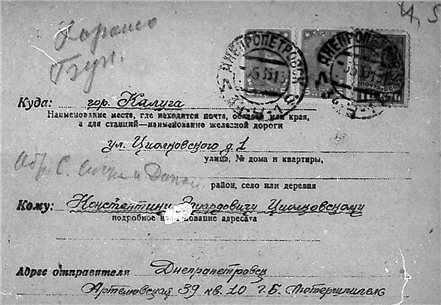 Хорошо
ДНЕПРОПЕТРОВСК
ДНЕПРОПЕТРОВСК
Куда: гор. Калуга
Наименование места, где находится почта, области или края,
а для станций—наименование железной дороги
ул. Циолковского д. 1
улица, № дома и квартиры,
район, село или деревня
Кому: Константину Эдуардовичу Циолковскому
подробное наименование адресата
Адрес отправителя Днепропетровск
Артемовская 39 кв. 10 Г. Б.